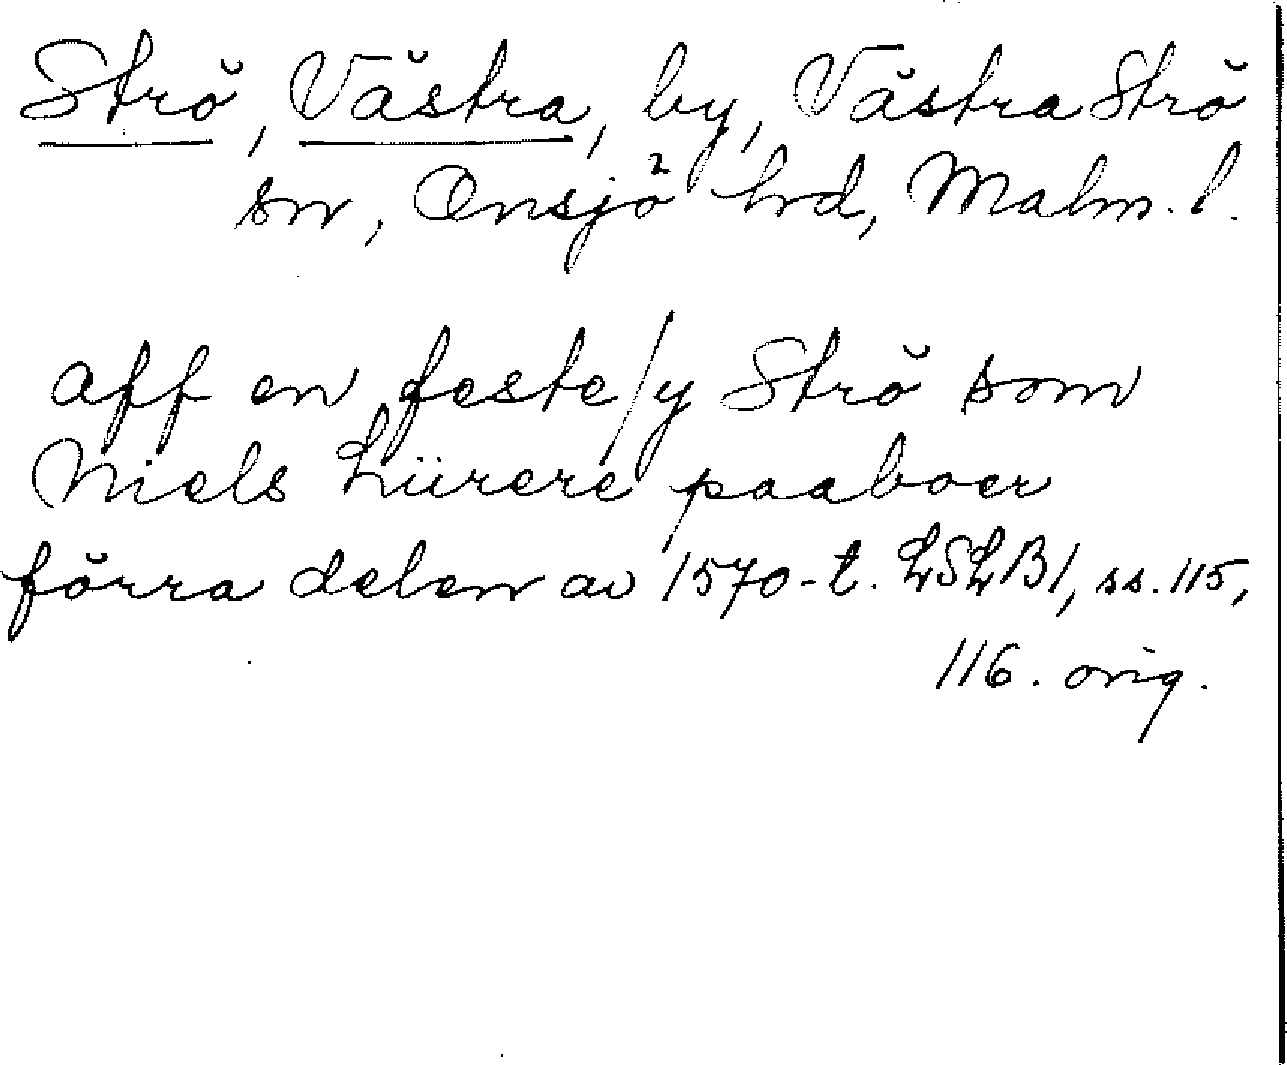 Strö, Västra, by, Västra Strö
sn, Onsjö hrd, Malm. l.
aff en feste/y Strö som
Niels Lürere paaboer
förra delen av 1570-t. LSLB1, ss. 115,
116. orig.